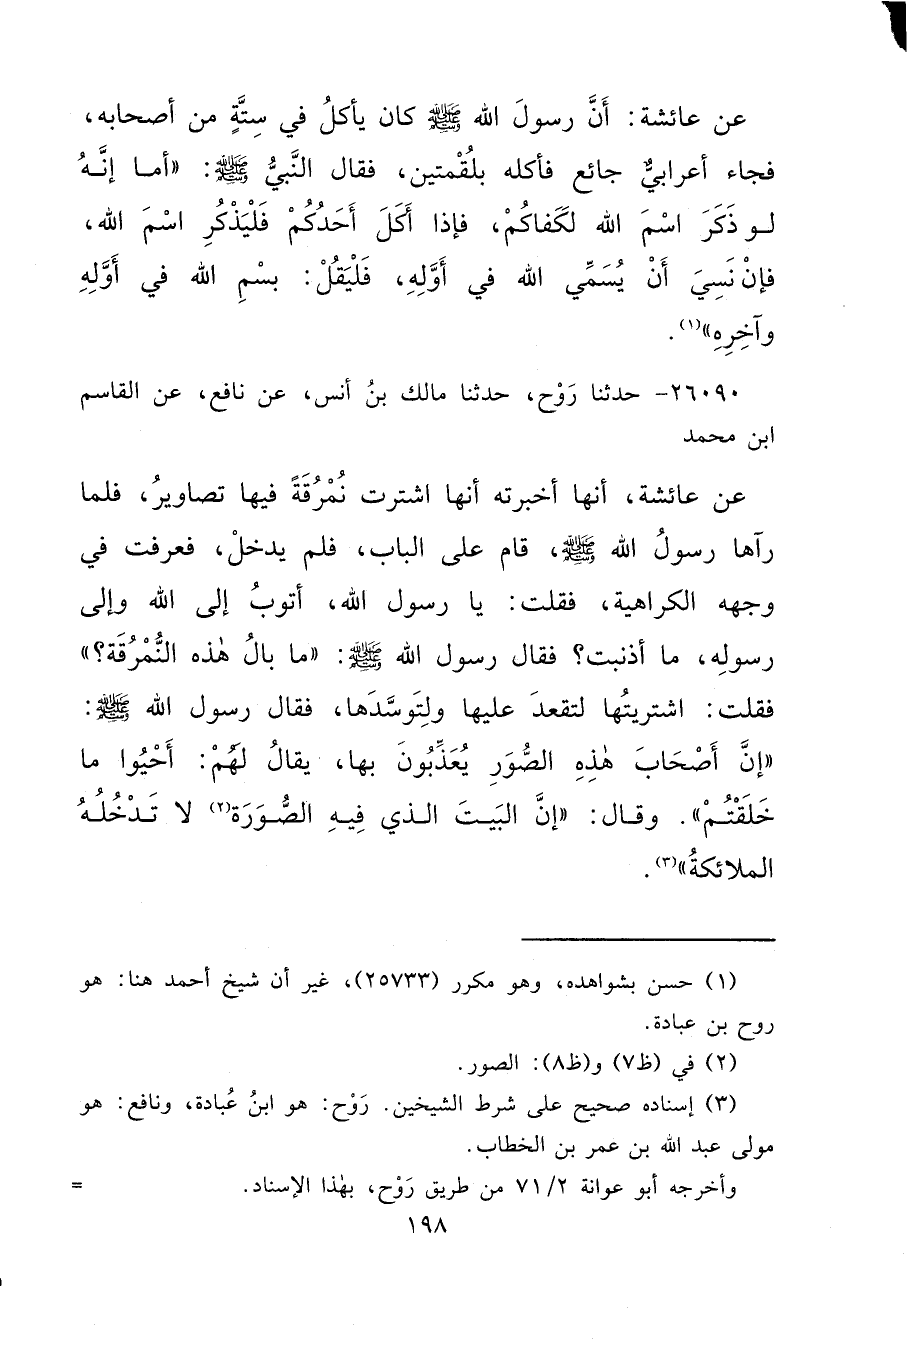 عن عائشة: أَنَّ رسولَ الله ﷺ كان يأكلُ في سِتَّةٍ من أصحابه،
فجاء أعرابيٌّ جائع فأكله بلُقْمتين، فقال النَّبيُّ ﷺ: «أمـا إنَّـهُ
لـو ذَكَرَ اسْمَ الله لكَفاكُمْ، فإذا أَكَلَ أَحَدُكُمْ فَلْيَذْكُرِ اسْمَ الله،
فإنْ نَسِيَ أَنْ يُسَمِّي الله في أَوَّلِهِ، فَلْيَقُلْ: بسْمِ الله في أَوَّلِهِ
وآخِرِهِ»(١).
٢٦٠٩٠- حدثنا رَوْح، حدثنا مالك بنُ أنس، عن نافع، عن القاسم
ابن محمد
عن عائشة، أنها أخبرته أنها اشترت نُمْرُقَةً فيها تصاويرُ، فلما
رآها رسولُ الله ﷺ، قام على الباب، فلم يدخلْ، فعرفت في
وجهه الكراهية، فقلت: يا رسول الله، أتوبُ إلى الله وإلى
رسولِه، ما أذنبت؟ فقال رسول الله ﷺ: «ما بالُ هٰذه النُّمْرُقَة؟»
فقلت: اشتريتُها لتقعدَ عليها ولِتَوسَّدَها، فقال رسول الله ﷺ:
«إنَّ أَصْحَابَ هٰذِهِ الصُّوَرِ يُعَذَّبُونَ بها، يقالُ لَهُمْ: أَحْيُوا ما
خَلَقْتُـمْ». وقـال: «إنَّ البَيـتَ الـذي فِيـهِ الصُّـوَرَة(٢) لا تَـدْخُلُـهُ
الملائكةُ»(٣).
(١) حسن بشواهده، وهو مكرر (٢٥٧٣٣)، غير أن شيخ أحمد هنا: هو
روح بن عبادة.
(٢) في (ظ٧) و(ظ٨): الصور.
(٣) إسناده صحيح على شرط الشيخين. رَوْح: هو ابنُ عُبادة، ونافع: هو
مولى عبد الله بن عمر بن الخطاب.
وأخرجه أبو عوانة ٧١/٢ من طريق رَوْح، بهٰذا الإسناد. =
١٩٨